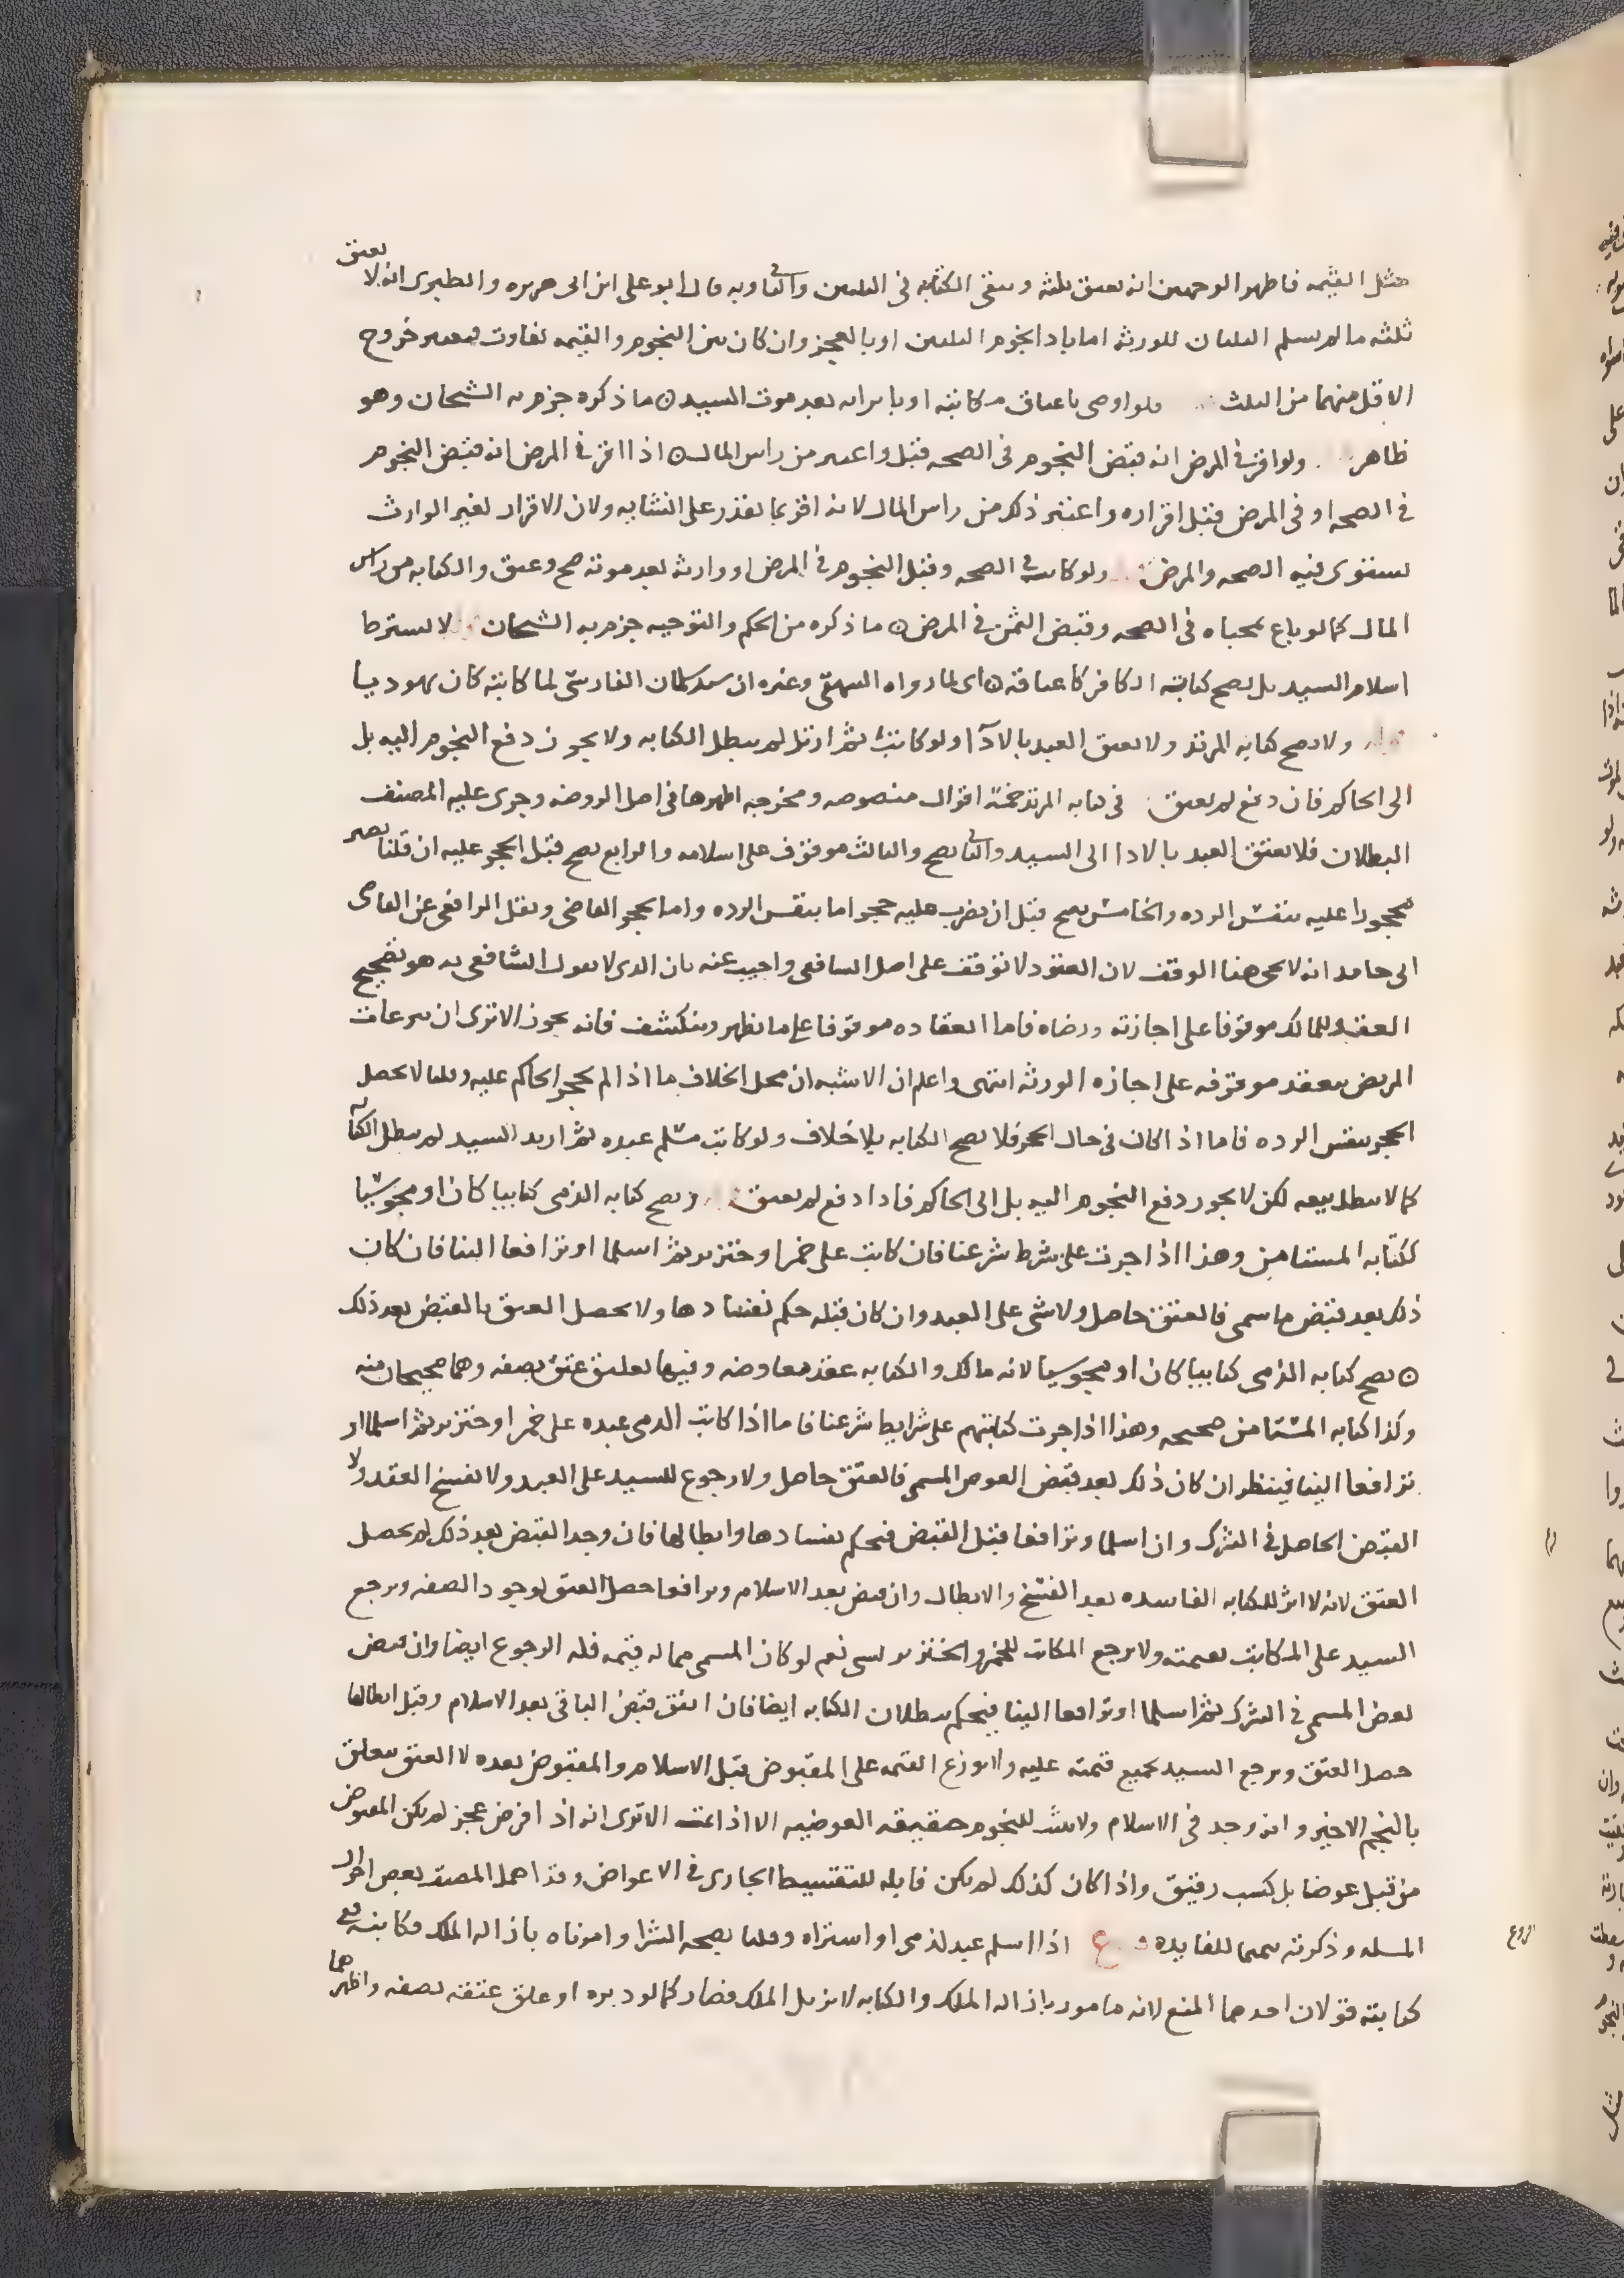 مثل القيمه فاظهر الوجهين انه يعتق ثلثه وتبقى الكتابه في الثلثين والثاني وبه قال ابو علي ابن ابي هريره والطبري انه لا يعتق
ثلثه ما لم يسلم الثلثان للورثه اما باداء النجوم الثلثين او بالعجز وان كان بين النجوم والقيمه تفاوت فيعتبر خروج
الاقل منهما من الثلث فلو اوصى باعتاق مكاتبه او بابرائه بعد موت السيد ما ذكره جزم به الشيخان وهو
ظاهر ولو اقر في المرض انه قبض النجوم في الصحه قبل واعتبر من راس المال اذا اقر في المرض انه قبض النجوم
في الصحه او في المرض قبل اقراره واعتبر ذلك من راس المال لانه اقر بما يقدر على انشايه ولان الاقرار لغير الوارث
يستوي فيه الصحه والمرض ولو كاتب في الصحه وقبل النجوم في المرض او وارثه بعد موته صح وعتق والكتابه من راس
المال كما لو باع بمحاباه في الصحه وقبض الثمن في المرض ما ذكره من الحكم والتوجيه جزم به الشيخان لا يشترط
اسلام السيد بل يصح كتابة الكافر كاعتاقه اي لما رواه البيهقي وغيره ان سيد سلمان الفارسي لما كاتبه كان يهوديا
ولا يصح كتابه المرتد ولا يعتق العبد بالاداء ولو كاتب ثم ارتد لم يبطل الكتابه ولا يجوز دفع النجوم اليه بل
الى الحاكم فان دفع لم يعتق في كتابه المرتد خمسة اقوال منصوصه ومخرجه اظهرها في اصل الروضه وجرى عليه المصنف
البطلان فلا يعتق العبد بالادا الى السيد والثاني يصح والثالث موقوف على اسلامه والرابع يصح قبل الحجر عليه ان قلنا يصير
محجورا عليه بنفس الرده والخامس يصح قبل ان يضرب عليه حجر اما بنفس الرده واما بحجر القاضي ونقل الرافعي عن القاضي
ابي حامد انه لا يجي هنا الوقف لان العقود لا توقف على اصل الشافعي واجيب عنه بان الذي لا يقول الشافعي به هو تصحيح
العقد للمالك موقوفا على اجازته ورضاه فاما انعقاده موقوفا على ما يظهر وينكشف فانه يجوز الا ترى ان تبرعات
المريض ينعقد موقوفه على اجازه الورثه انتهى واعلم ان الاشبه ان محل الخلاف ما اذا لم يحجر الحاكم عليه وقلنا لا يحصل
الحجر بنفس الرده فاما اذا كان في حال الحجر فلا يصح الكتابه بلا خلاف ولو كاتب مسلم عبده ثم ارتد السيد لم يبطل الكتابه
كما لا يبطل بيعه لكن لا يجوز دفع النجوم اليه بل الى الحاكم فاذا دفع لم يعتق ويصح كتابه الذمي كتابيا كان او مجوسيا
ككتابه المستامن وهذا اذا جرت على شرط شرعنا فان كاتب على خمر او خنزير ثم اسلما او ترافعا الينا فان كان
ذلك بعد قبض ما سمى فالعتق حاصل ولا شى على العبد وان كان قبله حكم بفسادها ولا يحصل العتق بالقبض بعد ذلك
يصح كتابه الذمي كتابيا كان او مجوسيا لانه مالك والكتابه عقد معاوضه وفيها تعليق عتق بصفه وهما صحيحان منه
وكذا كتابه المستامن صحيحه وهذا اذا جرت كتابتهم على شرايط شرعنا فاما اذا كاتب الذمي عبده على خمر او خنزير ثم اسلما او
ترافعا الينا فينظر ان كان ذلك بعد قبض العوض المسمى فالعتق حاصل ولا رجوع للسيد على العبد ولا يفسخ العقد ولا
القبض الحاصل في الشرك وان اسلما وترافعا قبل القبض فيحكم بفسادها وابطالها فان وجد القبض بعد ذلك لم يحصل
العتق لانه لا اثر للكتابه الفاسده بعد الفسخ والابطال وان قبض بعد الاسلام وترافعا حصل العتق لوجود الصفه ويرجع
السيد على المكاتب بقيمته ولا يرجع المكاتب للخمر والخنزير بشى نعم لو كان المسمى مما له قيمه فله الرجوع ايضا وان قبض
بعض المسمى في الشرك ثم اسلما او ترافعا الينا فيحكم ببطلان الكتابه ايضا فان اتفق قبض الباقي بعد الاسلام وقبل ابطالها
حصل العتق ويرجع السيد بجميع قيمته عليه ولا توزع القيمه على المقبوض قبل الاسلام والمقبوض بعده لا العتق يتعلق
بالنجم الاخير وانه وجد في الاسلام ولا يثبت للنجوم حقيقه العوضيه الا اذا تمت الا ترى انه اذا فرض عجز لم يكن المقبوض
من قبل عوضا بل كسب رقيق واذا كان كذلك لم يكن قابله للتقسيط الجاري في الاعواض وقد اهمل المصنف بعض احوال
المسله وذكرته تتميما للفايده فرع اذا اسلم عبد لذمي او اشتراه وقلنا بصحه الشرا وامرناه بازاله الملك فكاتبه ففي
كتابته قولان احدهما المنع لانه مامور بازاله الملك والكتابه لا تزيل الملك فصار كما لو دبره او علق عتقه بصفه واظهرهما